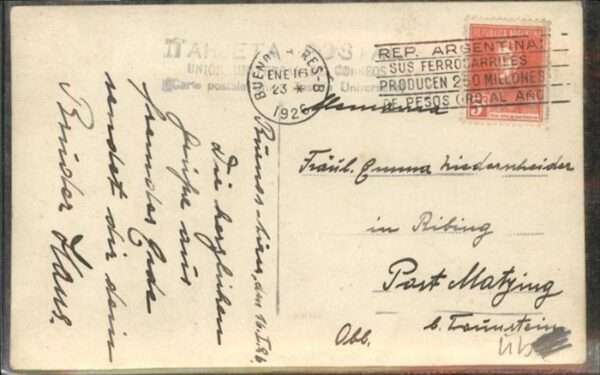 TARJETA POSTAL
UNION
Carte postale
BUENOS AIRES-B
ENE 16
23
1926
REP. ARGENTINA:
SUS FERROCARRILES
PRODUCEN 250 MILLONES
DE PESOS ORO AL AÑO
5
Alemania
Fräul. Emma Niederscheider
in Ribing
Post Matzing
b. Traunstein
Obb.
Buenos-Aires, den 16.I.26.
Die herzlichsten
Grüße aus
fremder Erde
sendet dir dein
Bruder Hans.